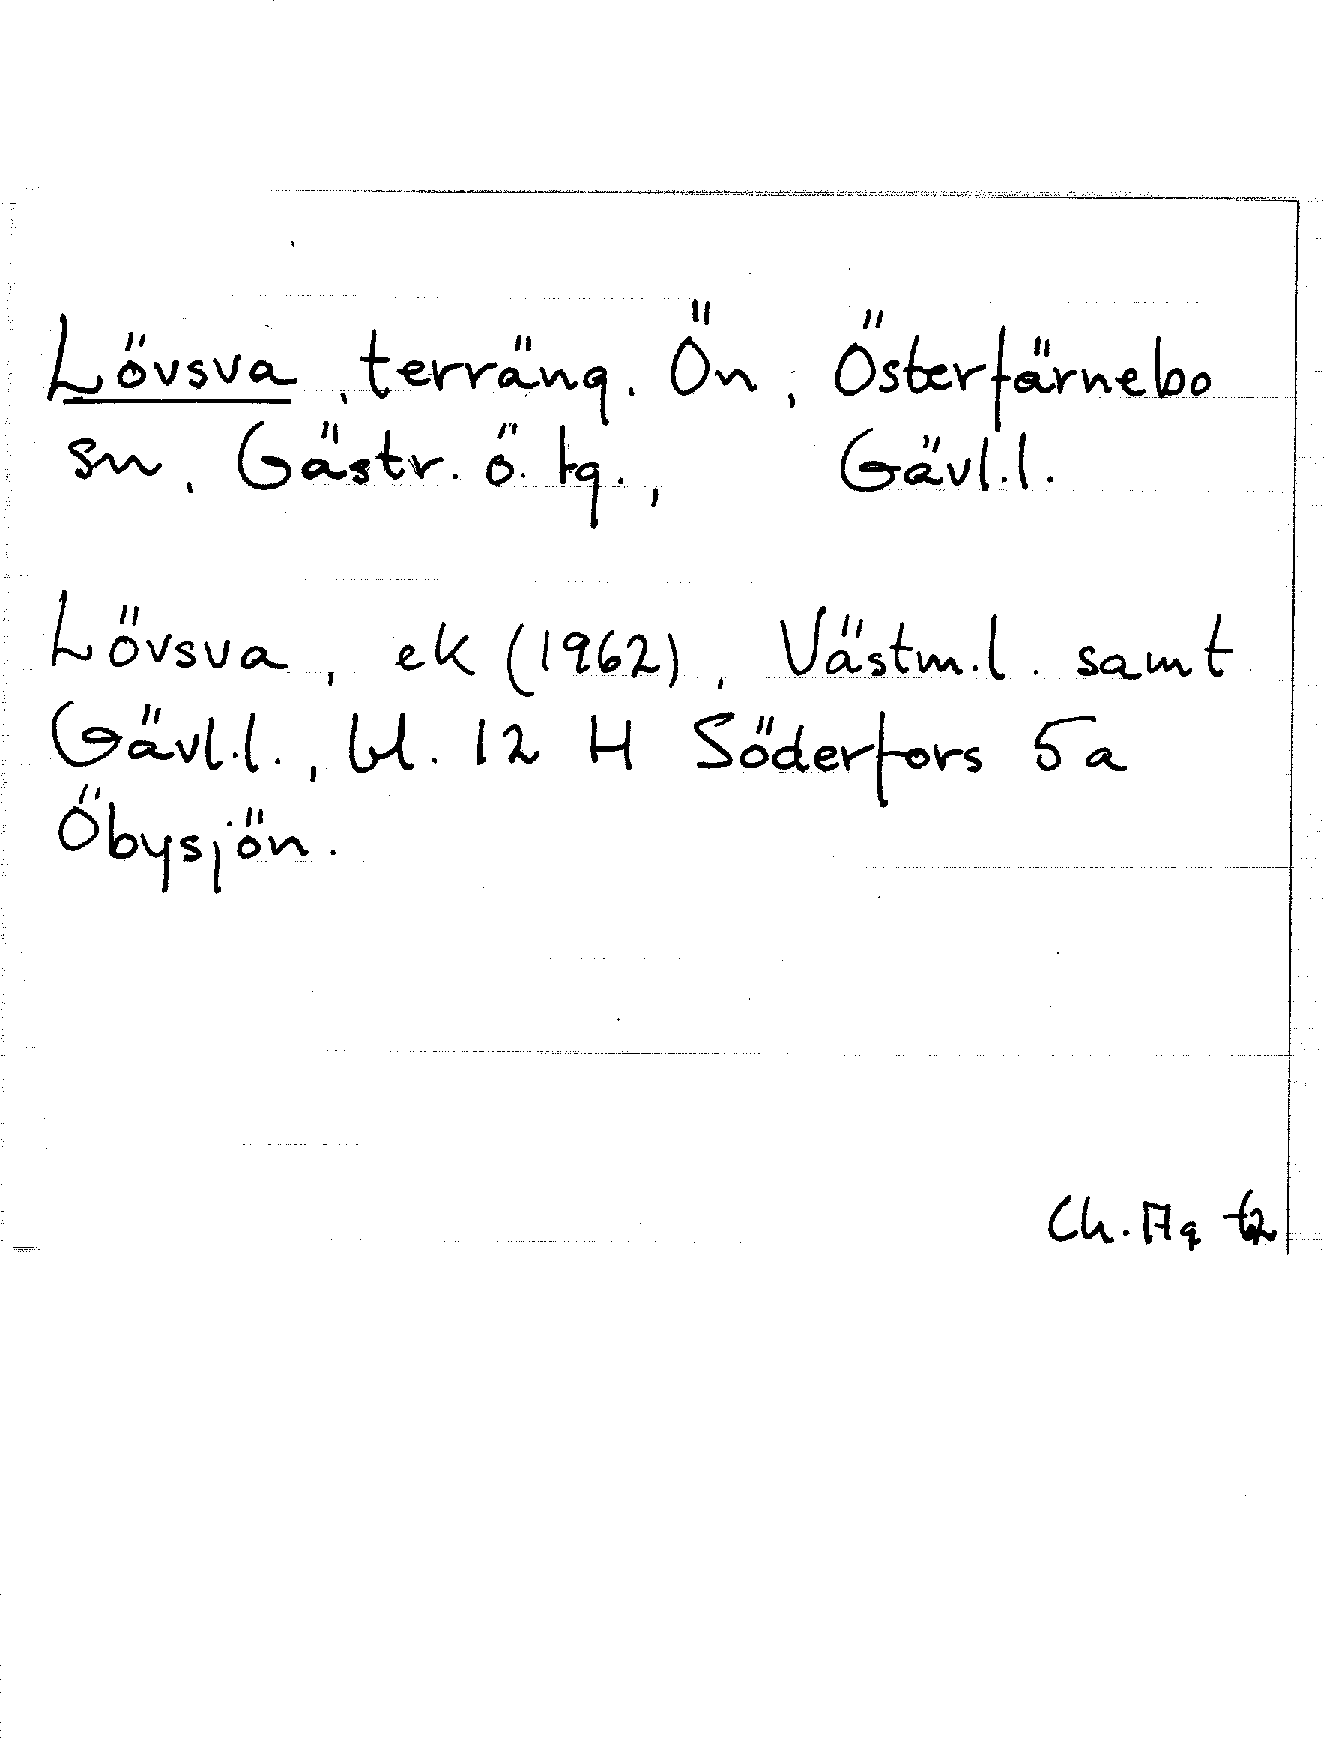 Lövsva, terräng. Ön, Österfärnebo
sn, Gästr. ö. tg., Gävl.l.
Lövsva, ek (1962), Västm.l. samt
Gävl.l., bl. 12 H Söderfors 5a
Öbysjön.
Ch. Aq 62